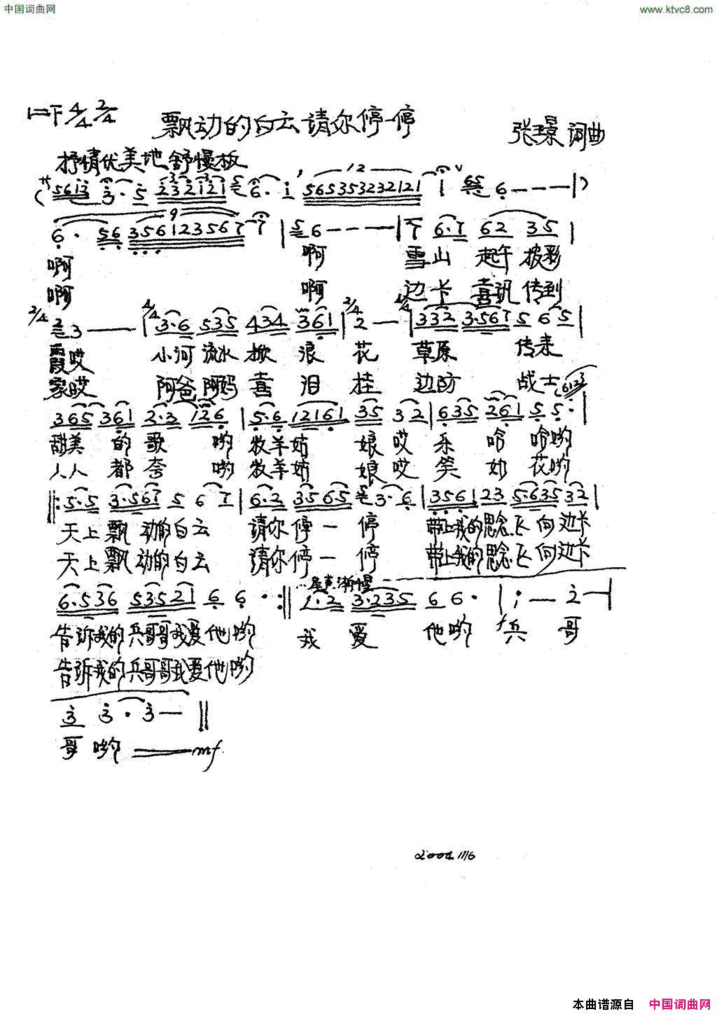 中国词曲网
www.ktvc8.com
1=F 4/4 2/4
飘动的白云请你停一停
张璟 词曲
抒情优美地 舒慢板
啊 啊 雪山 起午 披彩
啊 啊 边卡 喜讯 传到
2/4 3 — — 4/4 3·6 535 434 361 2/4 2 — 4/4 332 3·567 5 65
霞哎 小河 流水 掀 浪 花 草原 传来
家哎 阿爸 阿妈 喜 泪 挂 边防 战士
365 361 2·3 126 5·6 12161 35 32 635 261 5 5·
甜美 的 歌 哟 牧羊姑 娘哎 乐 哈 哈哟
人人 都 夸 哟 牧羊姑 娘哎 笑 如 花哟
5·5 3·567 5 67 6·2 3565 3·6 3561 23 5·635 32
天上飘 动的白云 请你停 一 停 带上我的思念飞向边卡
天上飘 动的白云 请你停 一 停 带上我的思念飞向边卡
6·536 53521 6 6· 1·2 3·235 6 6· i — 2 —
告诉我的兵哥哥我爱他哟 我 爱 他哟 兵 哥
告诉我的兵哥哥我爱他哟
3 3·3 —
哥 哟 mf
2004 11/6
本曲谱源自 中国词曲网